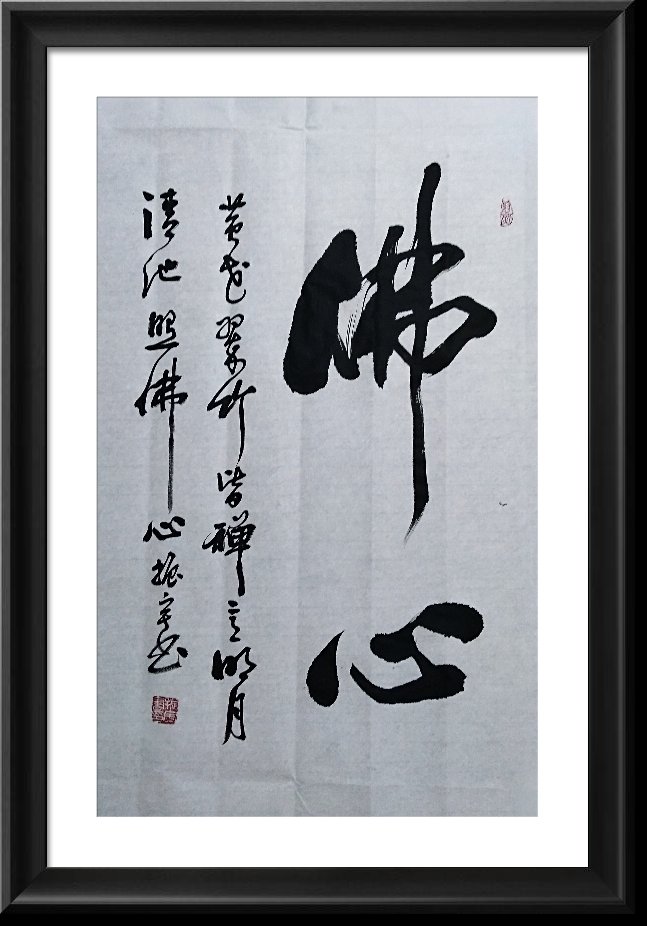 佛心
黄花翠竹皆禅意明月
清池照佛心振宇书